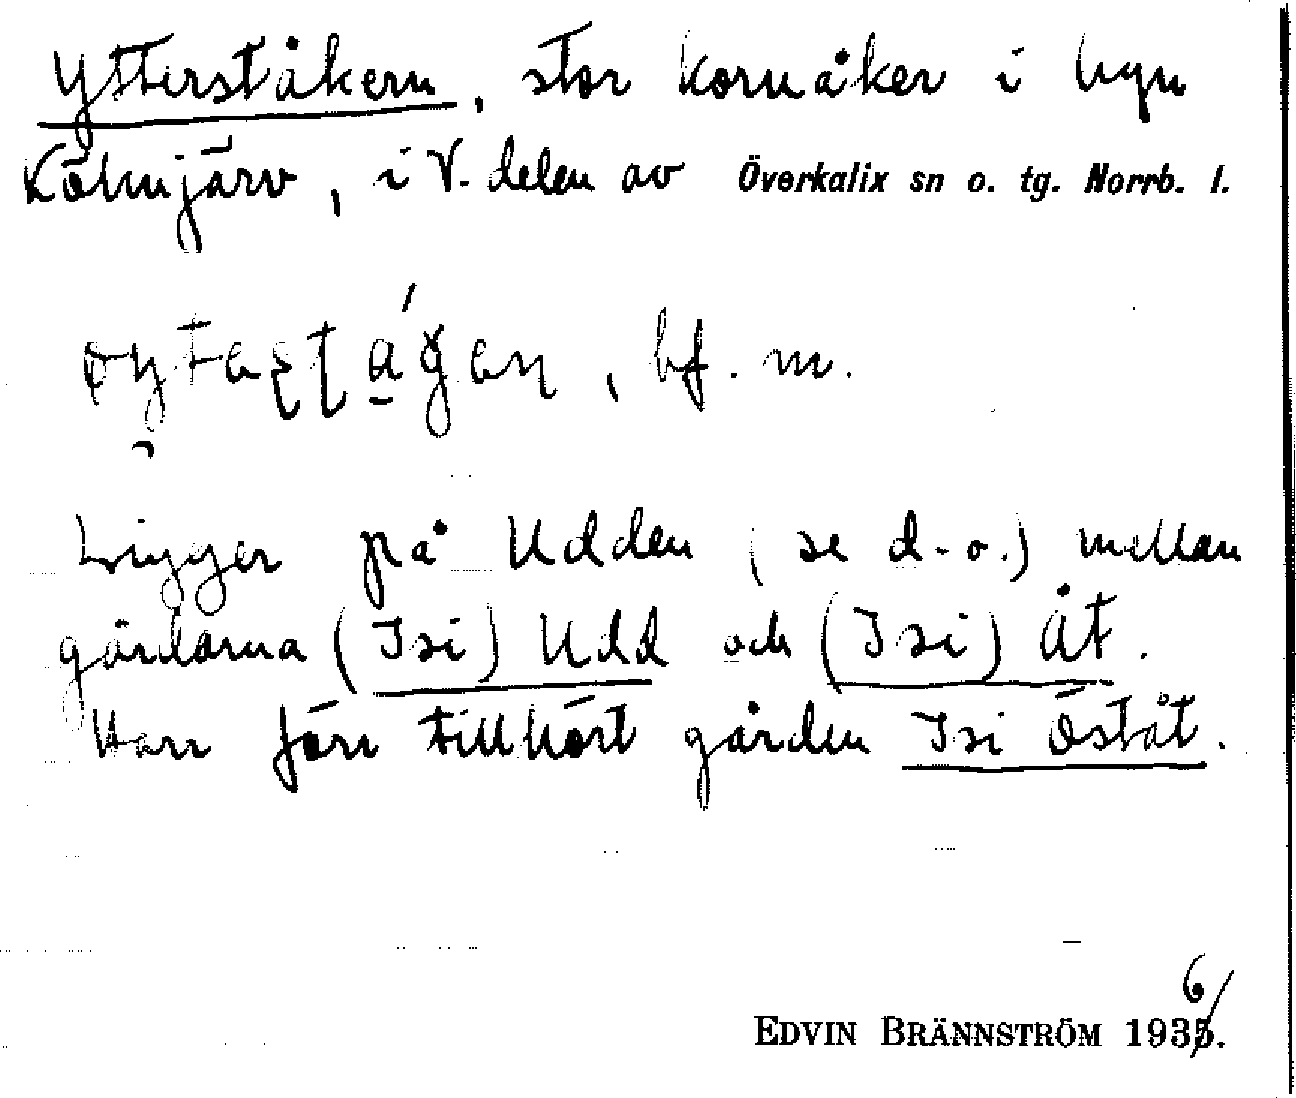 Ytterståkern, stor kornåker i byn
Kölmjärv, i V. delen av Överkalix sn o. tg. Norrb. l.
bf. m.
Ligger på Udden (se d.o.) mellan
gårdarna (Isi) Udd och (Isi) Åt.
Har förr tillhört gården Isi Öståt.
6
EDVIN BRÄNNSTRÖM 1935.